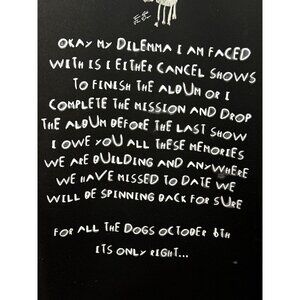 OKAY MY DILEMMA I AM FACED
WITH IS I EITHER CANCEL SHOWS
TO FINISH THE ALBUM OR I
COMPLETE THE MISSION AND DROP
THE ALBUM BEFORE THE LAST SHOW
I OWE YOU ALL THESE MEMORIES
WE ARE BUILDING AND ANYWHERE
WE HAVE MISSED TO DATE WE
WILL BE SPINNING BACK FOR SURE
FOR ALL THE DOGS OCTOBER 6TH
ITS ONLY RIGHT...